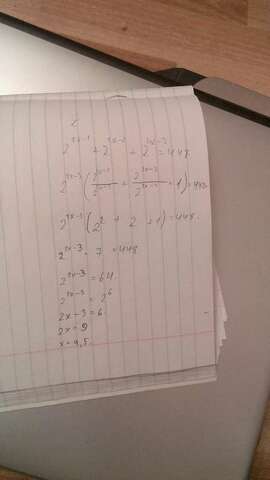 2^{2x-1} + 2^{2x-2} + 2^{2x-3} = 448
2^{2x-3} (2^{2x-1}/2^{2x-3} + 2^{2x-2}/2^{2x-3} + 1) = 448
2^{2x-3} (2^2 + 2 + 1) = 448.
2^{2x-3} · 7 = 448
2^{2x-3} = 64
2^{2x-3} = 2^6
2x-3=6
2x=9
x=4,5.